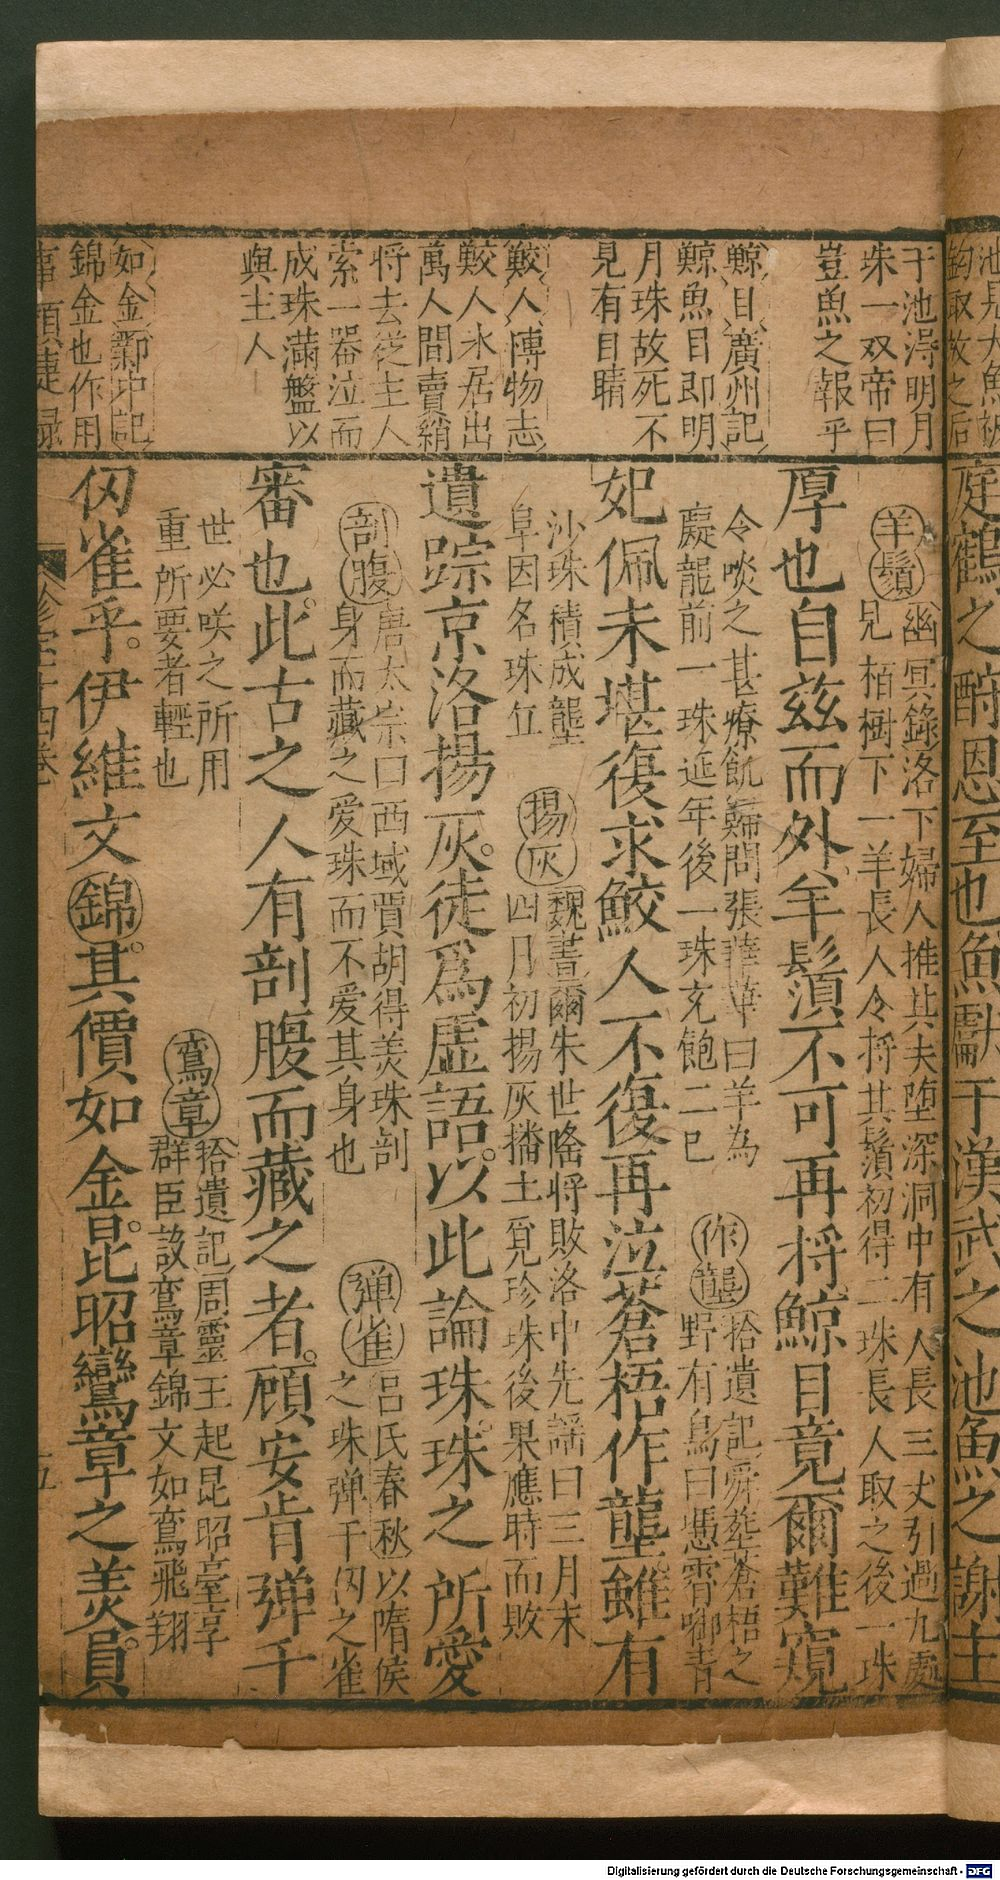 池見大魚被
釣取放之后
于池淂明月
珠一双帝曰
豈魚之報乎
鯨目廣州記
鯨魚目即明
月珠故死不
見有目睛
鮫人博物志
鮫人水居出
萬人間賣綃
将去從主人
索一器泣而
成珠滿盤以
與主人
如金鄴中記
錦金也作用
庭鶴之酧恩至也魚獻于漢武之池魚之謝主
羊鬚幽冥錄洛下婦人推其夫堕深洞中有人長三丈引過九處
見栢樹下一羊長人令将其鬚初得二珠長人取之後一珠
厚也自茲而外羊鬚不可再将鯨目竟爾難窺
令啖之甚療飢歸問張華華曰羊為
癡龍前一珠延年後一珠充飽二巳
作壟拾遺記舜葬蒼梧之
野有鳥曰憑霄啣青
妃佩未堪復求鮫人不復再泣蒼梧作壟雖有
沙珠積成壟
阜因名珠丘
揚灰魏書爾朱世隆将敗洛中先謡曰三月末
四月初揚灰播土覓珍珠後果應時而敗
遺踪京洛揚灰徒爲虛語以此論珠珠之所愛
剖腹唐太宗曰西域賈胡得羙珠剖
身而藏之愛珠而不愛其身也
弹雀呂氏春秋以隋侯
之珠弹千仭之雀
審也此古之人有剖腹而藏之者顧安肯弹千
世必咲之所用
重所要者輕也
鸞章拾遺記周靈王起昆昭臺享
群臣設鸞章錦文如鸞飛翔
仭雀乎伊維文錦其價如金昆昭鸞章之羙員
五
Digitalisierung gefördert durch die Deutsche Forschungsgemeinschaft - DFG